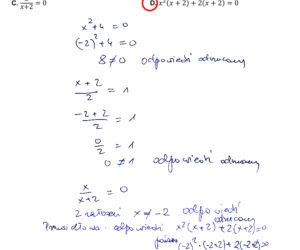 C. x/(x+2) = 0
D. x²(x + 2) + 2(x + 2) = 0
x² + 4 = 0
(-2)² + 4 = 0
8 ≠ 0 odpowiedź odrzucamy
(x + 2)/2 = 1
(-2 + 2)/2 = 1
0/2 = 1
0 ≠ 1 odpowiedź odrzucamy
x/(x+2) = 0
z założeń x ≠ -2 odpowiedź
odrzucamy
Prawidłowa odpowiedź x²(x+2)+2(x+2)=0
(-2)²·(-2+2)+2(-2+2)=0